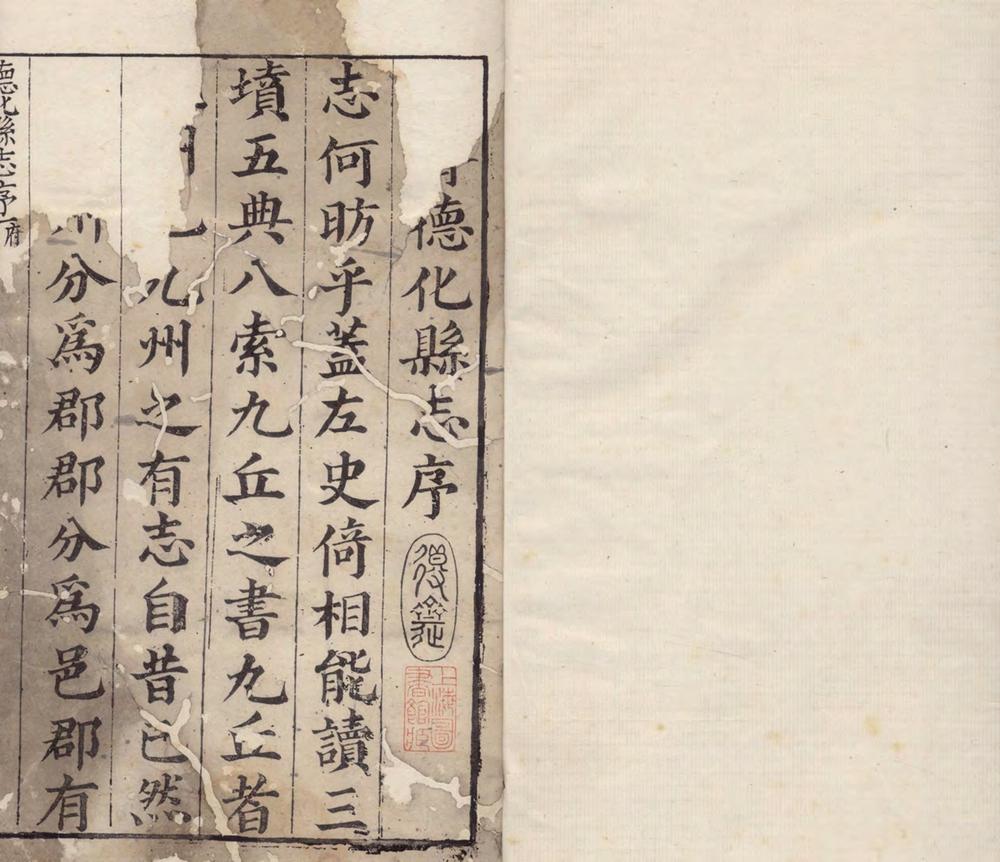 德化縣志序
上海圖書館藏
志何昉乎蓋左史倚相能讀三
墳五典八索九丘之書九丘者
九州之有志自昔已然
分爲郡郡分爲邑郡有
德化縣志序